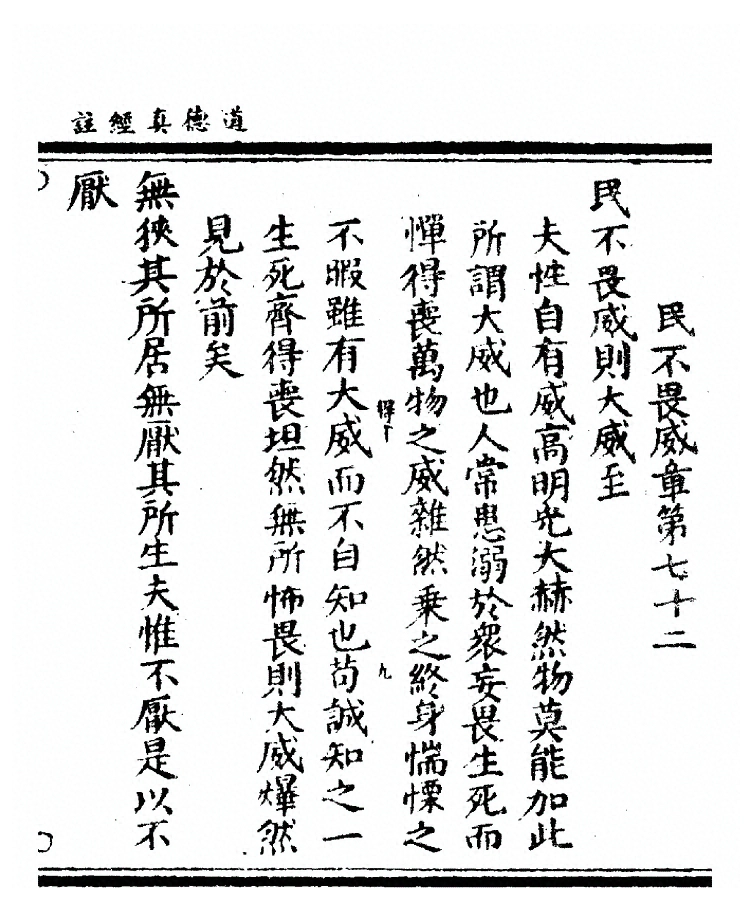 道德真經註
民不畏威章第七十二
民不畏威則大威至
夫性自有威高明光大赫然物莫能加此
所謂大威也人常患溺於衆妄畏生死而
憚得喪萬物之威雜然乗之終身惴慄之
得下
九
不暇雖有大威而不自知也苟誠知之一
生死齊得喪坦然無所怖畏則大威爗然
見於前矣
無狹其所居無厭其所生夫惟不厭是以不
厭